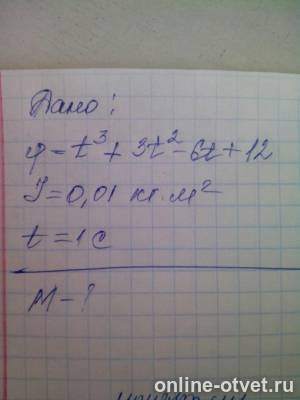 Дано:
φ=t³+3t²-6t+12
J=0,01 кг м²
t=1c
M-?
online-otvet.ru